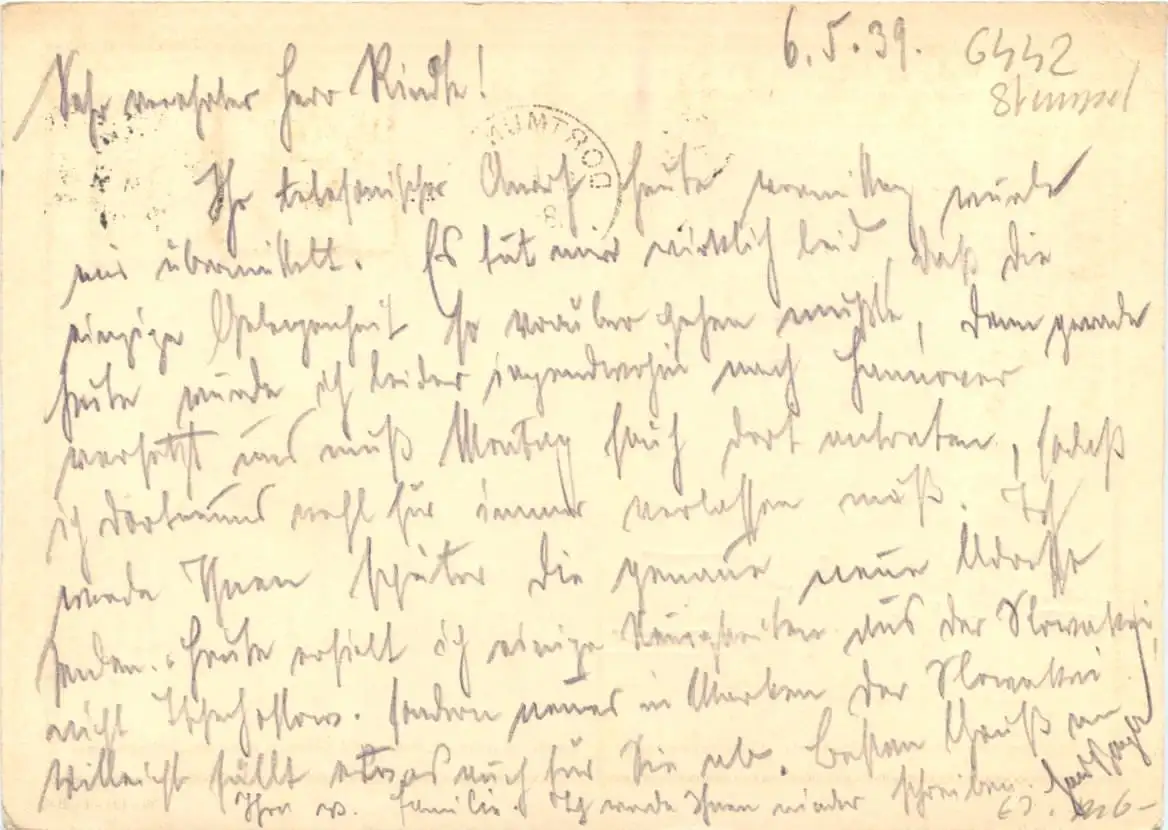 6.5.39.
6442
Stempel
Sehr verehrter Herr Rindte!
DORTMUND
8
Ihr telefonischer Anruf heute vormittag wurde
mir übermittelt. Es tut mir wirklich leid, daß die
einzige Gelegenheit so vorüber gehen mußte, denn gerade
heute wurde ich leider irgendwohin nach Hannover
versetzt und muß Montag früh dort antreten, sodaß
ich Dortmund wohl für immer verlassen muß. Ich
werde Ihnen später die genaue neue Adresse
senden. Heute erhielt ich einige Neuheiten aus der Slowakei,
nicht Tschechoslow. sondern neues in Marken der Slowakei
Vielleicht fällt etwas auch für Sie ab. Besten Gruß an
Ihre w. Familie. Ich werde Ihnen wieder schreiben.